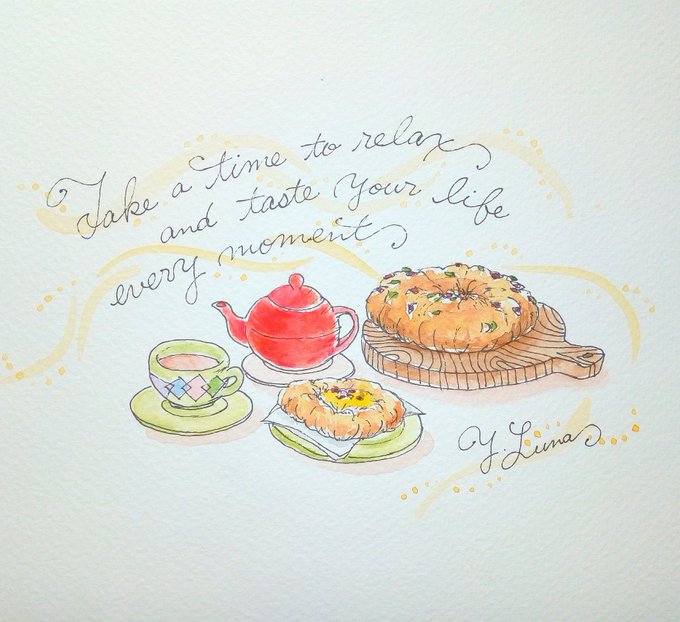 Take a time to relax
and taste your life
every moment
Y. Luna